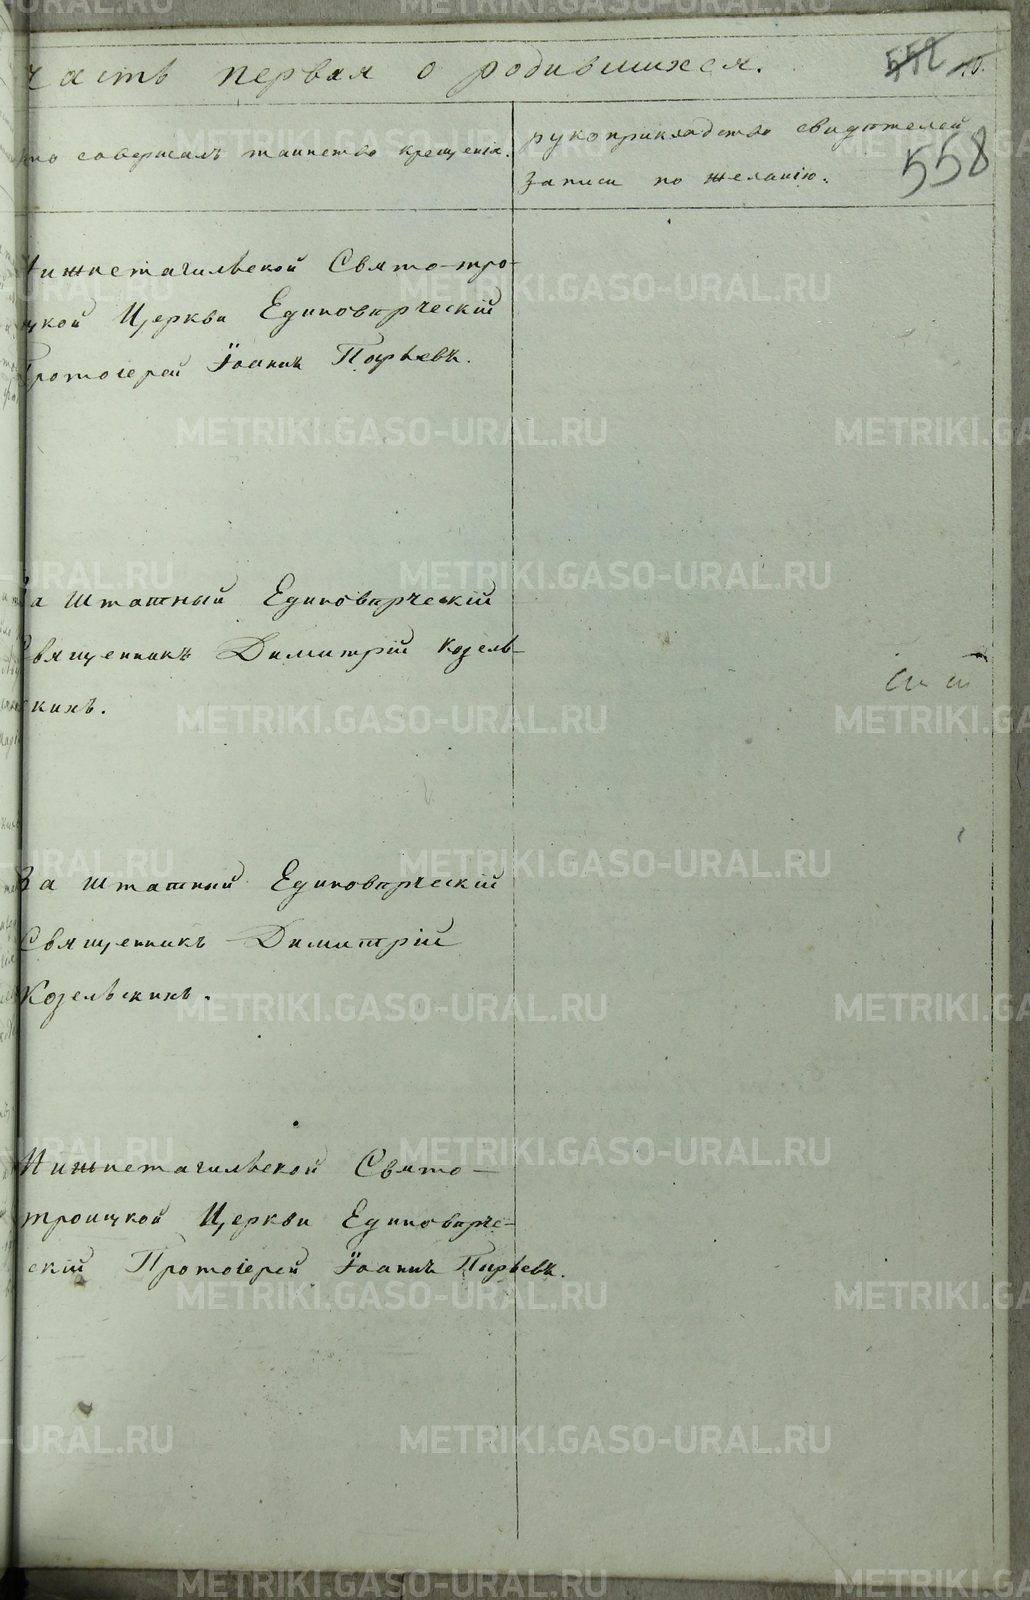 часть первая о родившихся.
552
558
кто совершалъ таинство крещенія.
рукоприкладство свидѣтелей
записи по желанію.
Нижнетагильской Свято-тро-
ицкой Церкви Единовѣрческій
Протоіерей Іоаннъ Пырьевъ.
За штатный Единовѣрческій
Священникъ Димитрій Козель-
скихъ.
За штатный Единовѣрческій
Священникъ Димитрій
Козельскихъ.
Нижнетагильской Свято-
троицкой Церкви Единовѣрче-
скій Протоіерей Іоаннъ Пырьевъ.
METRIKI.GASO-URAL.RU